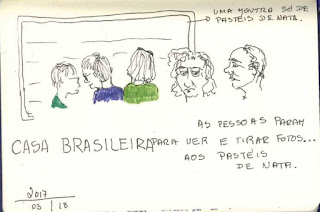 UMA MONTRA SÓ DE
PASTÉIS DE NATA.
AS PESSOAS PARAM
CASA BRASILEIRA PARA VER E TIRAR FOTOS...
AOS PASTÉIS
DE NATA.
2017
03 / 18